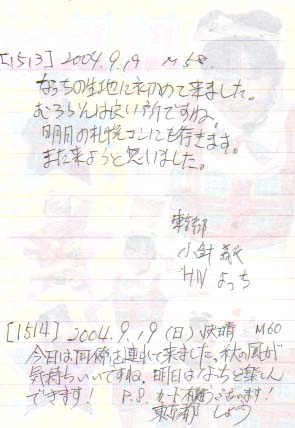 [1513] 2004.9.19 M58.
なっちの生地に初めて来ました。
むろらんは良い所ですね。
明日の札幌コンにも行きます。
また来ようと思いました。
東京都
小針
HN よっち
[1514] 2004.9.19(日)快晴 M60
今日は同僚を連れて来ました。秋の風が
気持ちいいですね。明日はなっちと楽しん
できます! P.S. カード有難うございます!
東京都 しょう